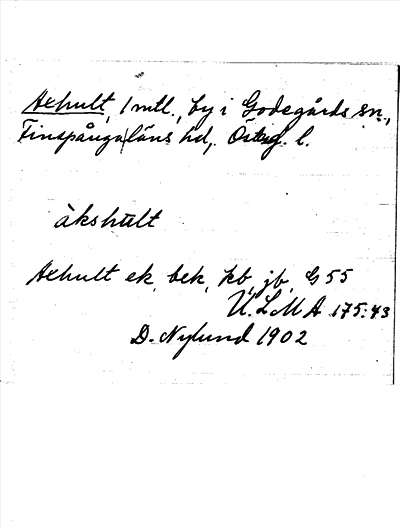 Axhult, 1 mtl., by i Godegårds sn.,
Finspånga läns hd, Östg. l.
àkshult
Axhult ek, bek, kb, jb, G 55
U.L.M.A 175:43
D. Nylund 1902